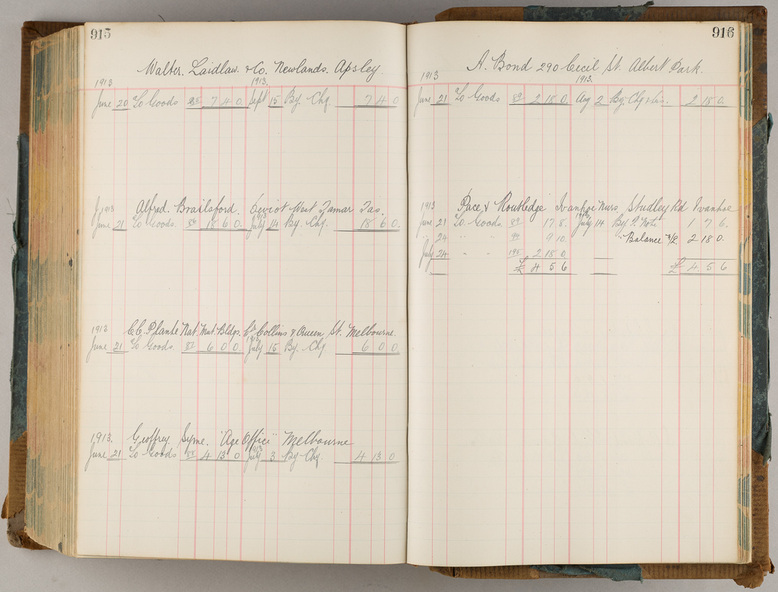 915
Walter. Laidlaw. & Co. Newlands. Apsley.
1913 1913.
June 20 To Goods 7 4 0 Sept 15 By Chq. 7 4 0
Alfred. Brailsford. West Tamar Tas.
June 21 To Goods 18 6 0 July 14 By. Chq. 18 6 0.
1913 C.C. Plante Nat. Mut. Bldgs. Cr Collins & Queen St. Melbourne
June 21 To Goods 6 0 0. July 15 By. Chq 6 0 0
1913. Geoffrey. Syme. "Age Office" Melbourne
June 21 To Goods 4 13 0 July 3 By Chq. 4 13 0
916
A. Bond 290 Cecil St Albert Park.
1913 1913.
June 21 To Goods 2 15 0. Aug 2 By. Chq 2 15 0.
1913 Pace & Routledge Ivanhoe Nurs. Studley Rd Ivanhoe
June 21 To Goods 17 8. July 14 By P. Note 1 17 6.
" 24 " " 9 10. "Balance 2 18 0.
July 24 " " 2 18 0
£ 4 5 6 £ 4 5 6